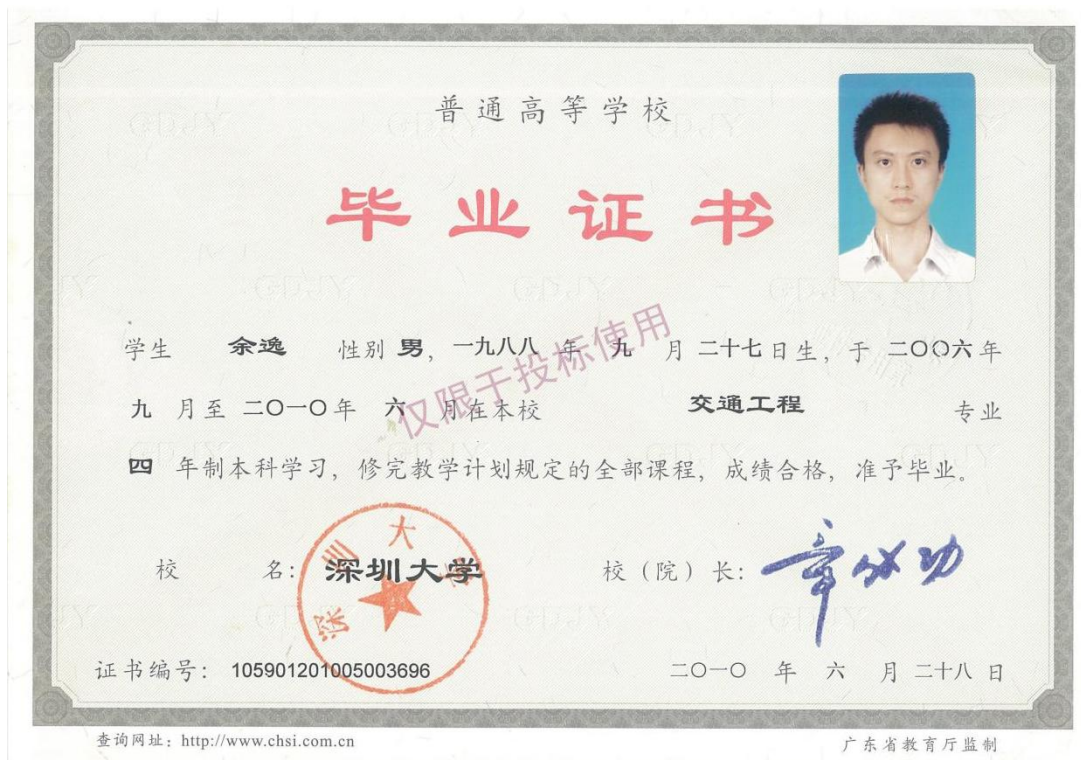 普通高等学校
毕业证书
学生 余逸 性别 男，一九八八 年 九 月 二十七日生，于 二〇〇六年
九 月至 二〇一〇年 六 月在本校 交通工程 专业
四 年制本科学习，修完教学计划规定的全部课程，成绩合格，准予毕业。
仅限于投标使用
校 名：深圳大学
深圳大学
校（院）长：章必功
证书编号：105901201005003696
二〇一〇 年 六 月 二十八 日
查询网址：http://www.chsi.com.cn
广东省教育厅监制